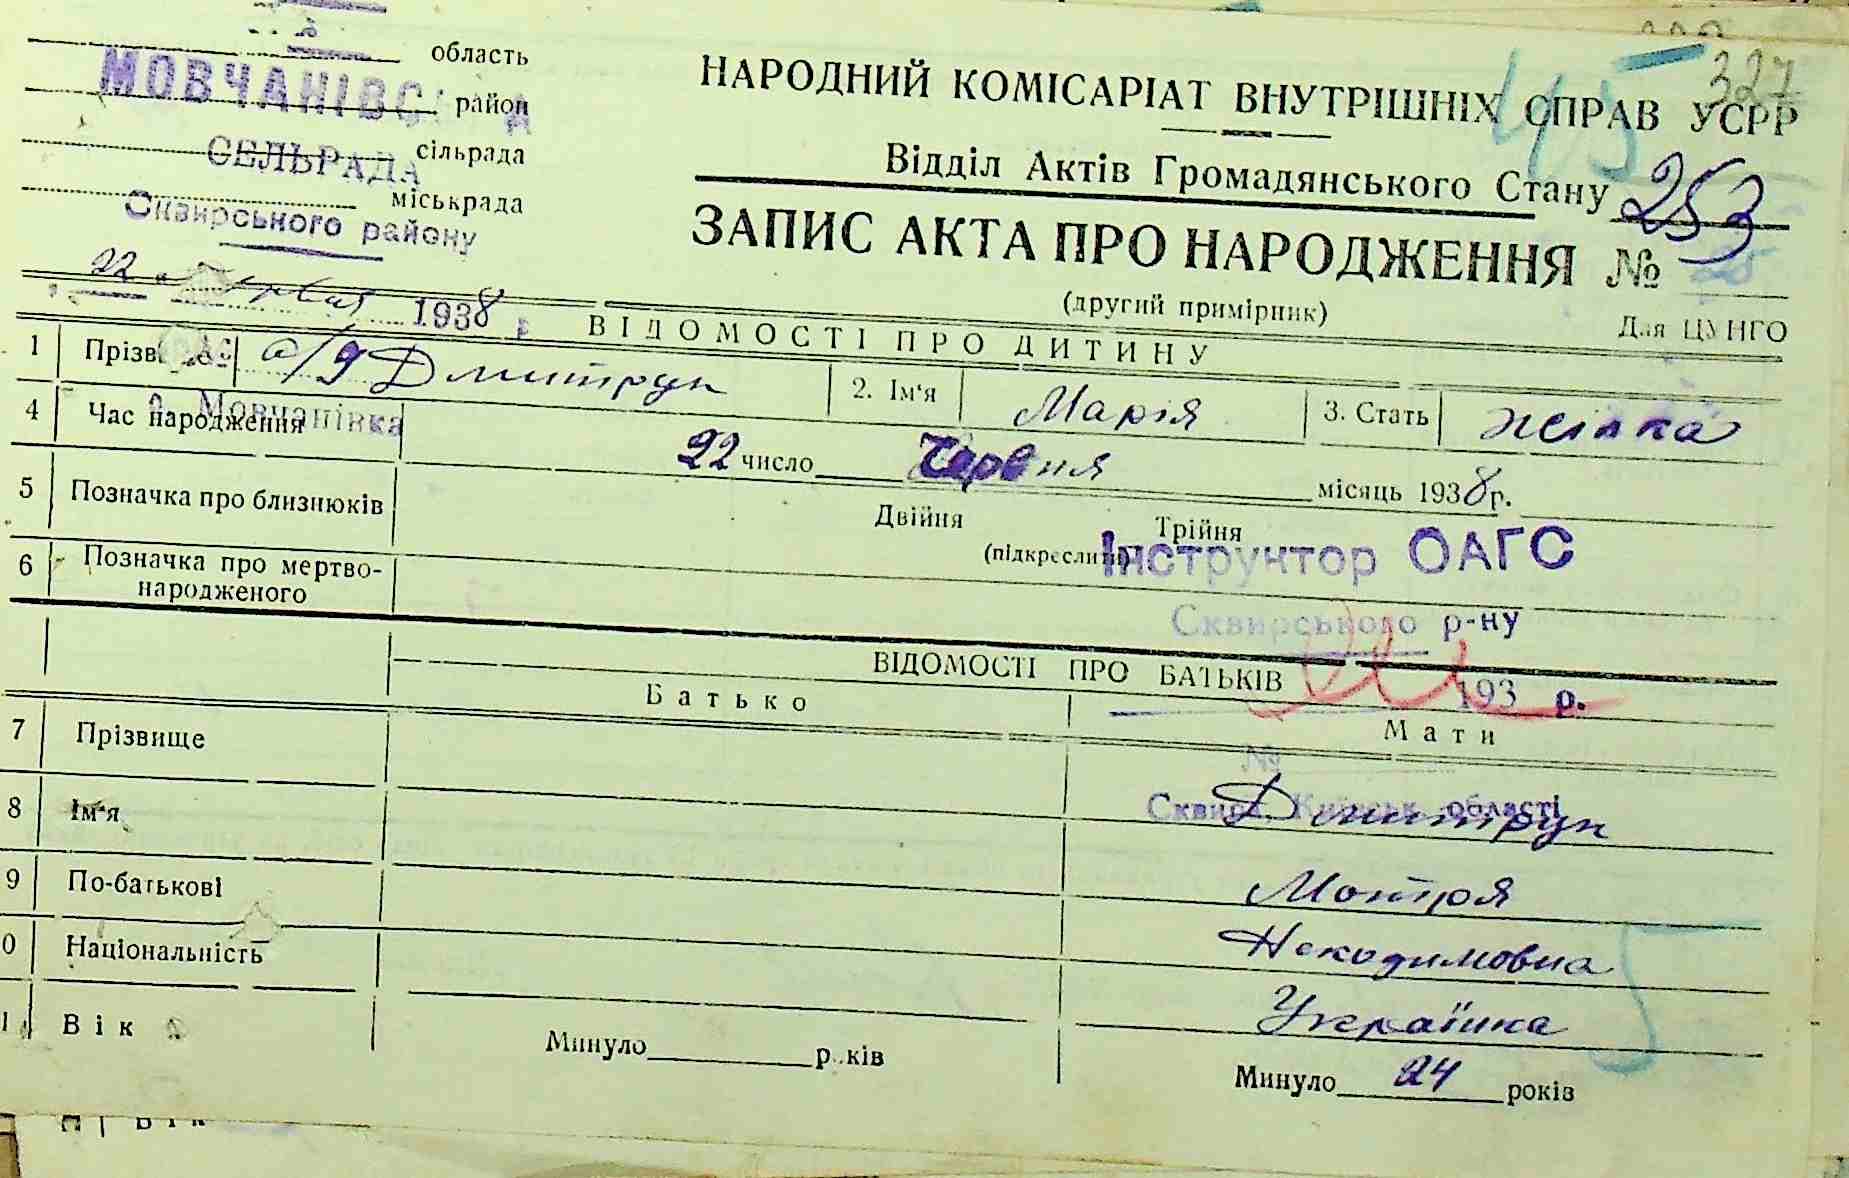 область
МОВЧАНІВС А район
СЕЛЬРАДА сільрада
міськрада
Сквирського району
НАРОДНИЙ КОМІСАРІАТ ВНУТРІШНІХ СПРАВ УСРР
415 327
Відділ Актів Громадянського Стану
ЗАПИС АКТА ПРО НАРОДЖЕННЯ № 253
(другий примірник) Для ЦУНГО
22 червня 1938 р.
ВІДОМОСТІ ПРО ДИТИНУ
1 Прізв Дмитрук 2. Ім'я Марія 3. Стать жінка
с. Мовчанівка
4 Час народження 22 число Червня місяць 1938 р.
5 Позначка про близнюків Двійня Трійня
(підкреслити)
Інструктор ОАГС
6 Позначка про мертво-
народженого
Сквирського р-ну
ВІДОМОСТІ ПРО БАТЬКІВ
193 р.
Батько Мати
№
7 Прізвище Дмитрук
Сквира, Київськ. області
8 Ім'я Мотря
9 По-батькові Никодимовна
0 Національність Українка
1 Вік Минуло р..ків Минуло 24 років
Вік